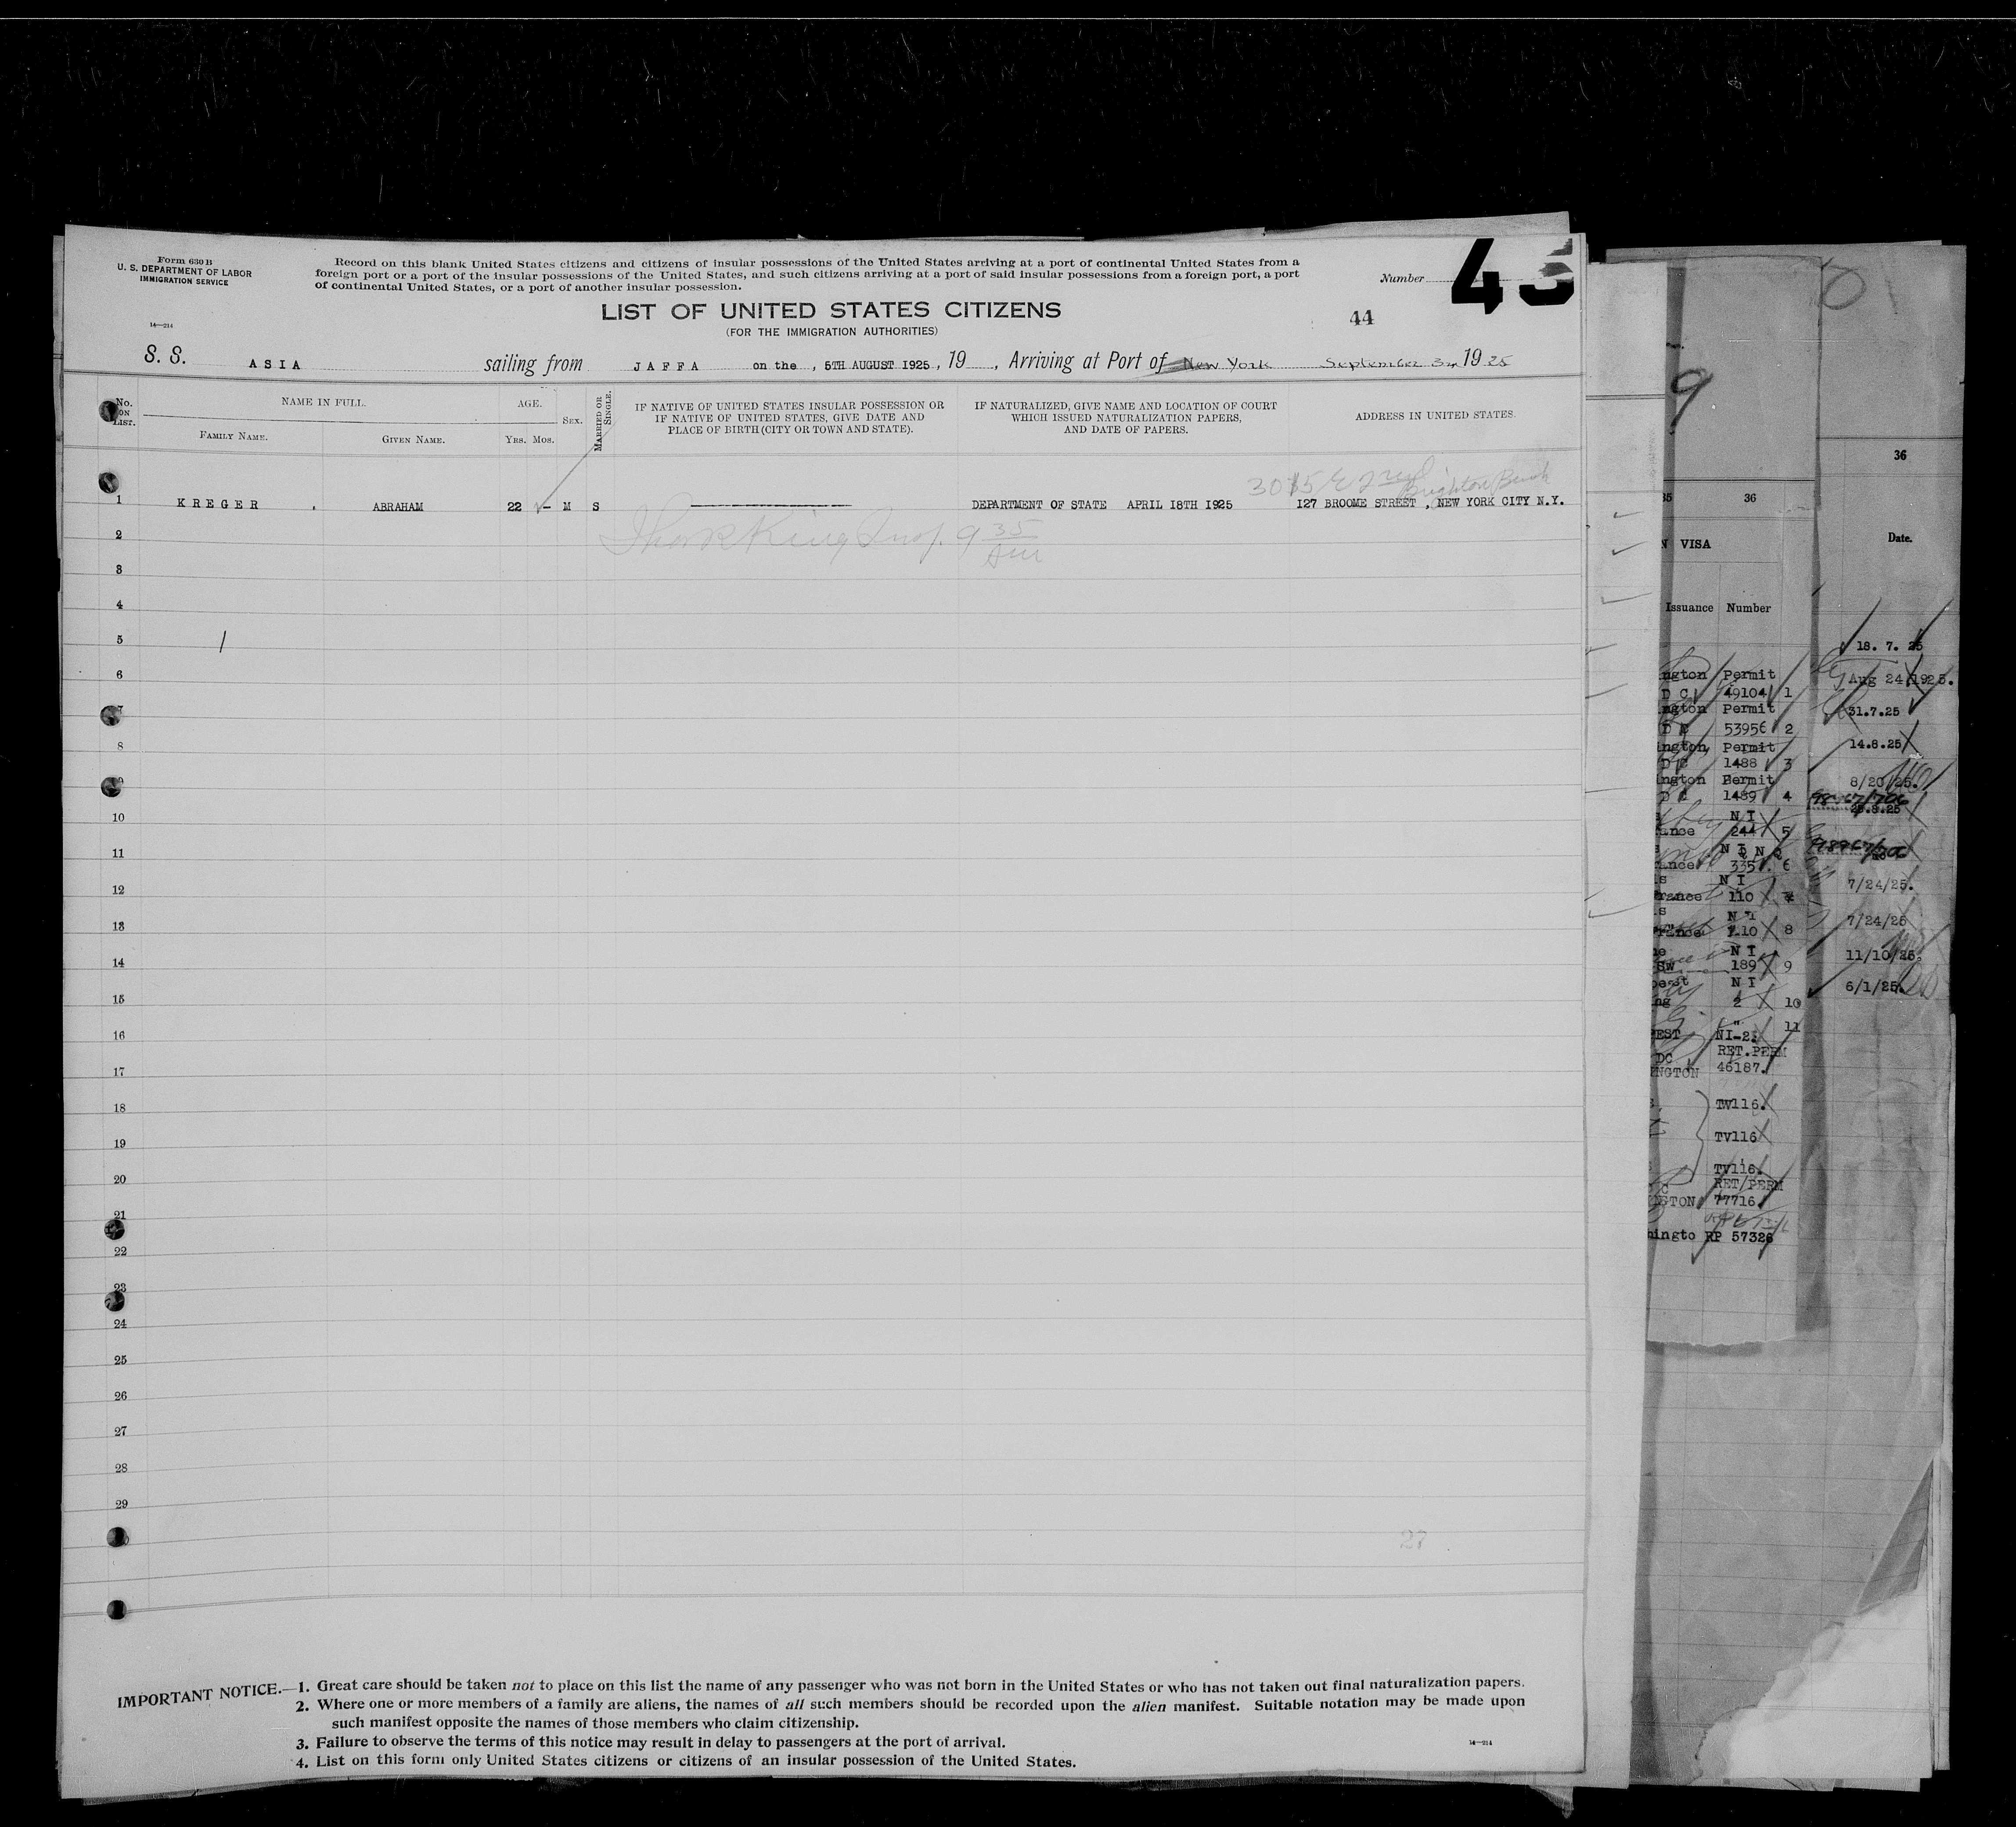 Form 630 B
U. S. DEPARTMENT OF LABOR
IMMIGRATION SERVICE
14—214
Record on this blank United States citizens and citizens of insular possessions of the United States arriving at a port of continental United States from a
foreign port or a port of the insular possessions of the United States, and such citizens arriving at a port of said insular possessions from a foreign port, a port
of continental United States, or a port of another insular possession.
Number 43
LIST OF UNITED STATES CITIZENS
(FOR THE IMMIGRATION AUTHORITIES)
44
S. S. ASIA sailing from JAFFA on the , 5TH AUGUST 1925 , 19 , Arriving at Port of New York September 3rd 1925
No. ON LIST.
NAME IN FULL.
FAMILY NAME.
GIVEN NAME.
AGE.
YRS. MOS.
SEX.
MARRIED OR SINGLE.
IF NATIVE OF UNITED STATES INSULAR POSSESSION OR
IF NATIVE OF UNITED STATES, GIVE DATE AND
PLACE OF BIRTH (CITY OR TOWN AND STATE).
IF NATURALIZED, GIVE NAME AND LOCATION OF COURT
WHICH ISSUED NATURALIZATION PAPERS,
AND DATE OF PAPERS.
ADDRESS IN UNITED STATES.
1 KREGER , ABRAHAM 22 - M S DEPARTMENT OF STATE APRIL 18TH 1925 127 BROOME STREET , NEW YORK CITY N.Y.
King Insp. 9 35
Am
2
3
4
5
6
7
8
9
10
11
12
13
14
15
16
17
18
19
20
21
22
23
24
25
26
27
28
29
27
IMPORTANT NOTICE.—1. Great care should be taken not to place on this list the name of any passenger who was not born in the United States or who has not taken out final naturalization papers.
2. Where one or more members of a family are aliens, the names of all such members should be recorded upon the alien manifest. Suitable notation may be made upon
such manifest opposite the names of those members who claim citizenship.
3. Failure to observe the terms of this notice may result in delay to passengers at the port of arrival.
4. List on this form only United States citizens or citizens of an insular possession of the United States.
14—214
9
35 36
VISA
Issuance Number
Permit
49104 1
Permit
2
Permit
1488 3
Permit
1489 4
N I
244 5
335 6
N I
110
N I
110 8
N I
189 9
N I
2 10
11
NI-2
RET.PERM
46187
TV116
TV116
TV116
RET/PERM
77716
RP 57326
36
Date.
18. 7. 25
Aug 24 1925.
31.7.25
14.8.25
8/20/25.
7/24/25.
7/24/25
11/10/25.
6/1/25.